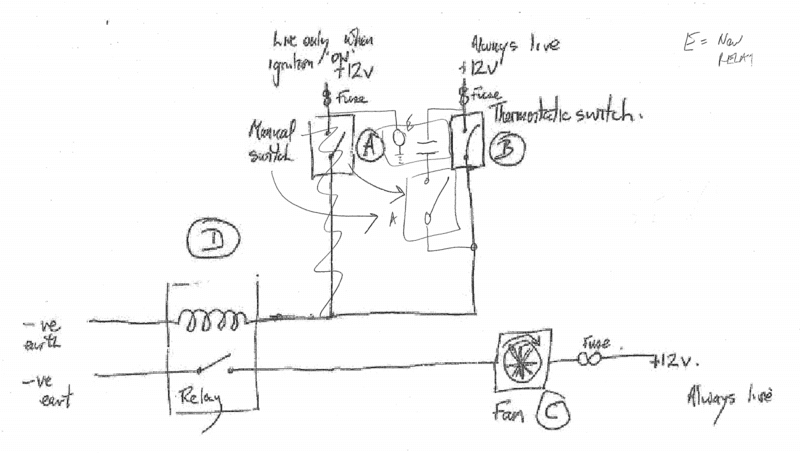 Live only when
ignition "ON"
+12v
Fuse
Always live
+12v
Fuse
E = New
RELAY
Manual
switch
A
E
Thermostatic switch.
B
A
D
-ve
earth
-ve
eart
Relay
Fan C
Fuse
+12v.
Always live